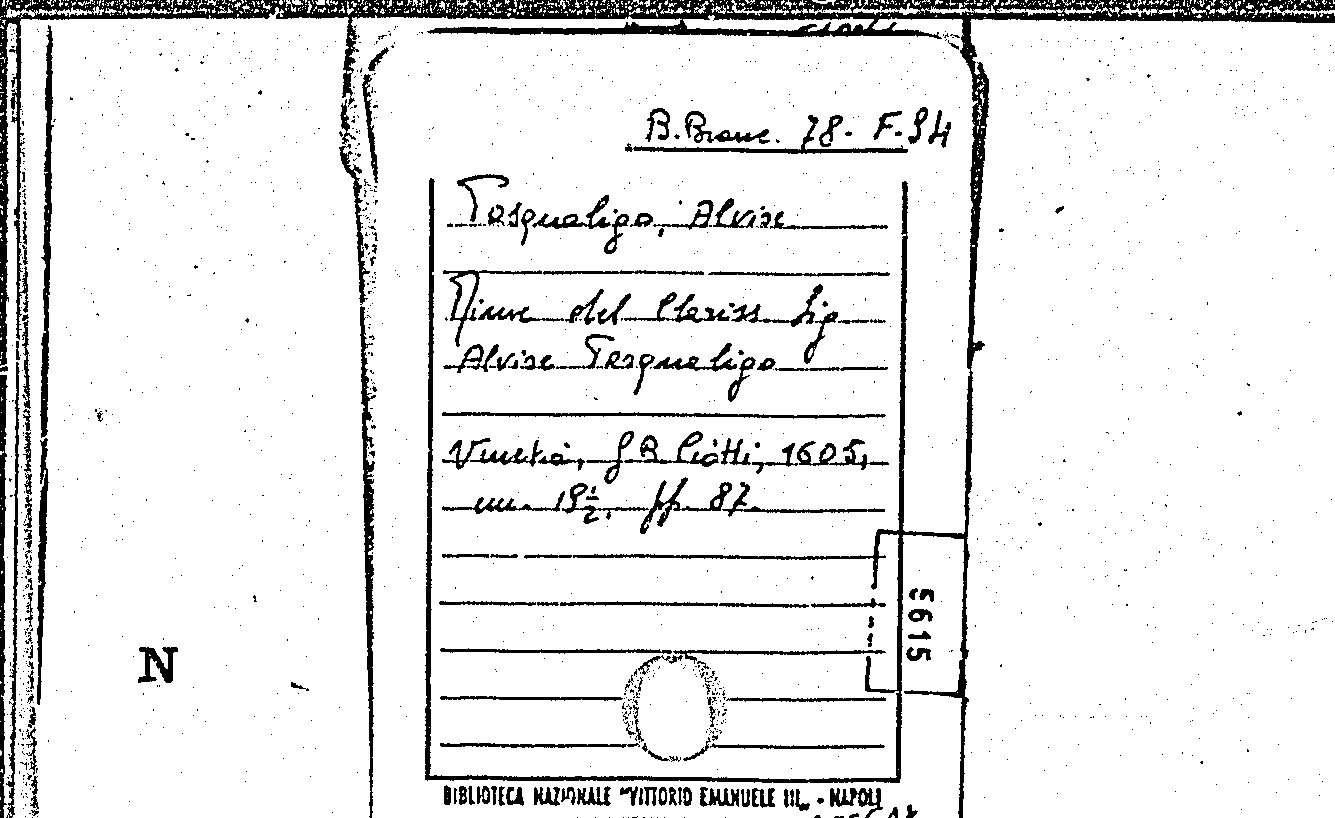 B. Branc. 78- F. 94
Pasqualigo, Alvise
Rime del Clariss Sig
Alvise Pasqualigo
Venetia, G B Ciotti, 1605,
in- 19½, pp. 87
5615
N
BIBLIOTECA NAZIONALE "VITTORIO EMANUELE III" - NAPOLI